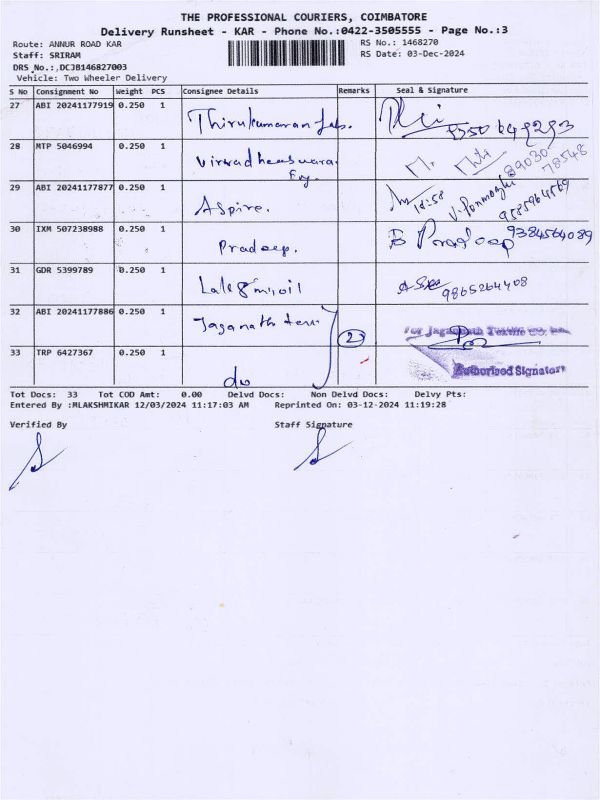 THE PROFESSIONAL COURIERS, COIMBATORE
Delivery Runsheet - KAR - Phone No.:0422-3505555 - Page No.:3
Route: ANNUR ROAD KAR
RS No.: 1468270
Staff: SRIRAM
RS Date: 03-Dec-2024
DRS No.:.DCJB146827003
Vehicle: Two Wheeler Delivery
S No Consignment No Weight PCS Consignee Details Remarks Seal & Signature
27 ABI 20241177919 0.250 1 Thirukumaran
28 MTP 5046994 0.250 1
29 ABI 20241177877 0.250 1 Aspire. 9585964569
30 IXM 507238988 0.250 1 Pradeep. B Pradeep 9384564089
31 GDR 5399789 0.250 1 9865264408
32 ABI 20241177886 0.250 1 Jaganath 2 For Jagannath Textile Co.
33 TRP 6427367 0.250 1 do Authorised Signatory
Tot Docs: 33 Tot COD Amt: 0.00 Delvd Docs: Non Delvd Docs: Delvy Pts:
Entered By :MLAKSHMIKAR 12/03/2024 11:17:03 AM Reprinted On: 03-12-2024 11:19:28
Verified By Staff Signature